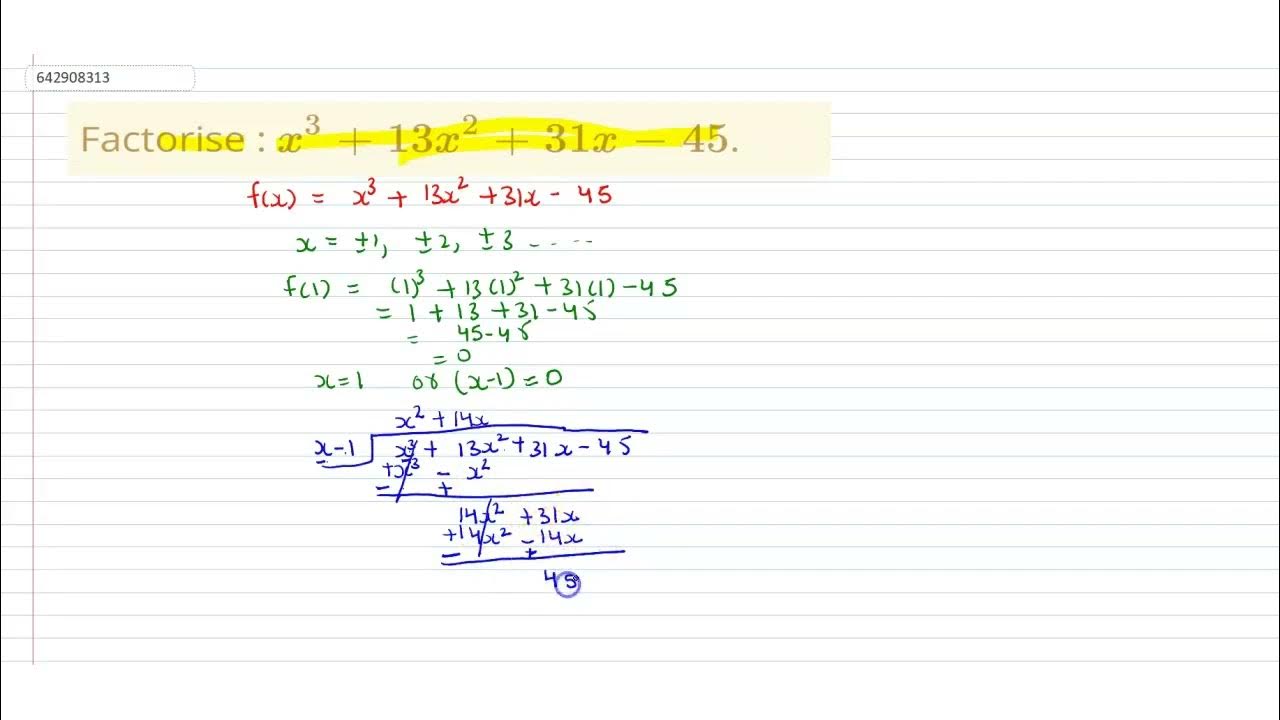 642908313
Factorise : x³ + 13x² + 31x − 45.
f(x) = x³ + 13x² + 31x − 45
x = ±1, ±2, ±3 ----
f(1) = (1)³ + 13(1)² + 31(1) − 45
= 1 + 13 + 31 − 45
= 45 − 45
= 0
x = 1 or (x−1) = 0
x² + 14x
x−1 x³ + 13x² + 31x − 45
+x³ − x²
− +
14x² + 31x
+14x² − 14x
− +
45